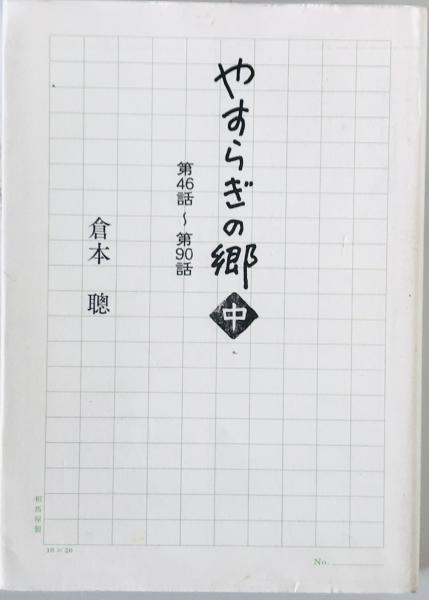 やすらぎの郷 中
第46話～第90話
倉本 聰
相馬屋製
10×20
No.